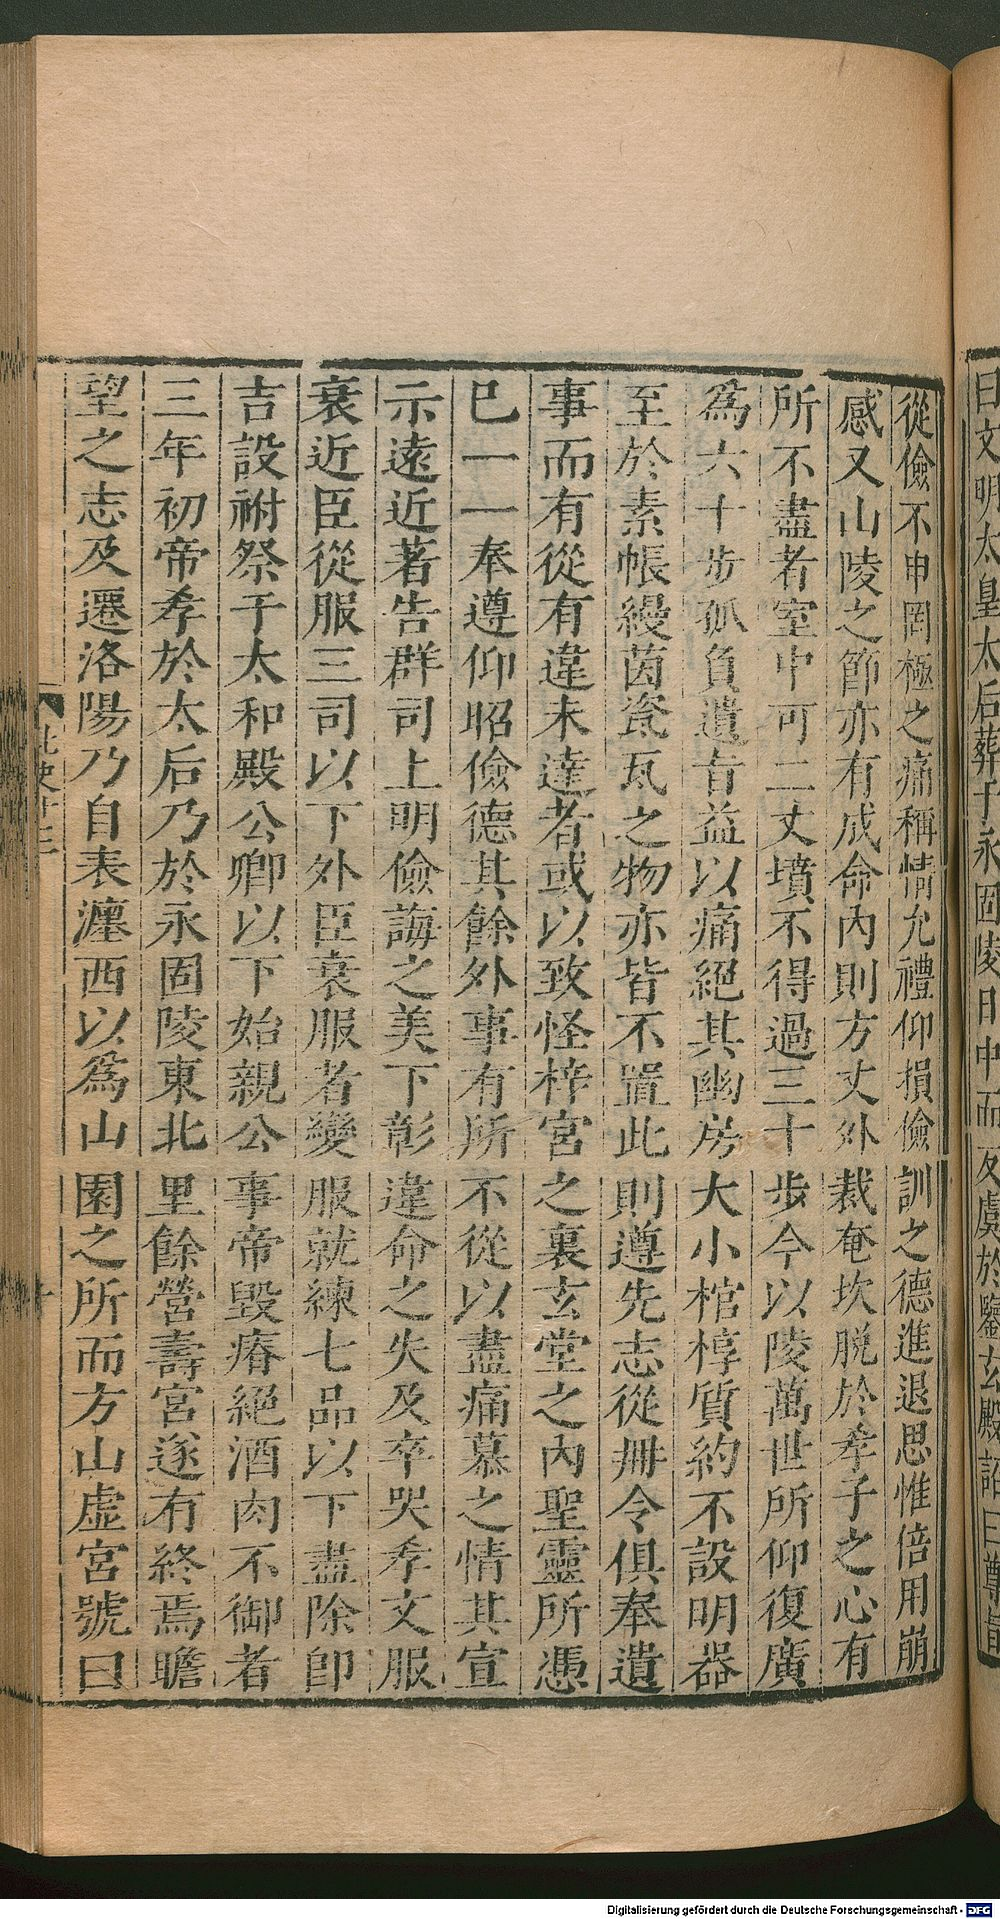 曰文明太皇太后葬于永固陵日中而反虞於鑒玄殿詔曰尊旨
從儉不申罔極之痛稱情允禮仰損儉訓之德進退思惟倍用崩
感又山陵之節亦有成命內則方丈外裁奄坎脱於孝子之心有
所不盡者室中可二丈墳不得過三十步今以陵萬世所仰復廣
爲六十步孤負遺旨益以痛絕其幽房大小棺椁質約不設明器
至於素帳縵茵瓷瓦之物亦皆不置此則遵先志從册令俱奉遺
事而有從有違未達者或以致怪梓宮之裏玄堂之內聖靈所憑
已一一奉遵仰昭儉德其餘外事有所不從以盡痛慕之情其宣
示遠近著告群司上明儉誨之美下彰違命之失及卒哭孝文服
衰近臣從服三司以下外臣衰服者變服就練七品以下盡除即
吉設祔祭于太和殿公卿以下始親公事帝毀瘠絕酒肉不御者
三年初帝孝於太后乃於永固陵東北里餘營壽宮遂有終焉瞻
望之志及遷洛陽乃自表瀍西以爲山園之所而方山虛宮號曰
北史十三
十
Digitalisierung gefördert durch die Deutsche Forschungsgemeinschaft - DFG